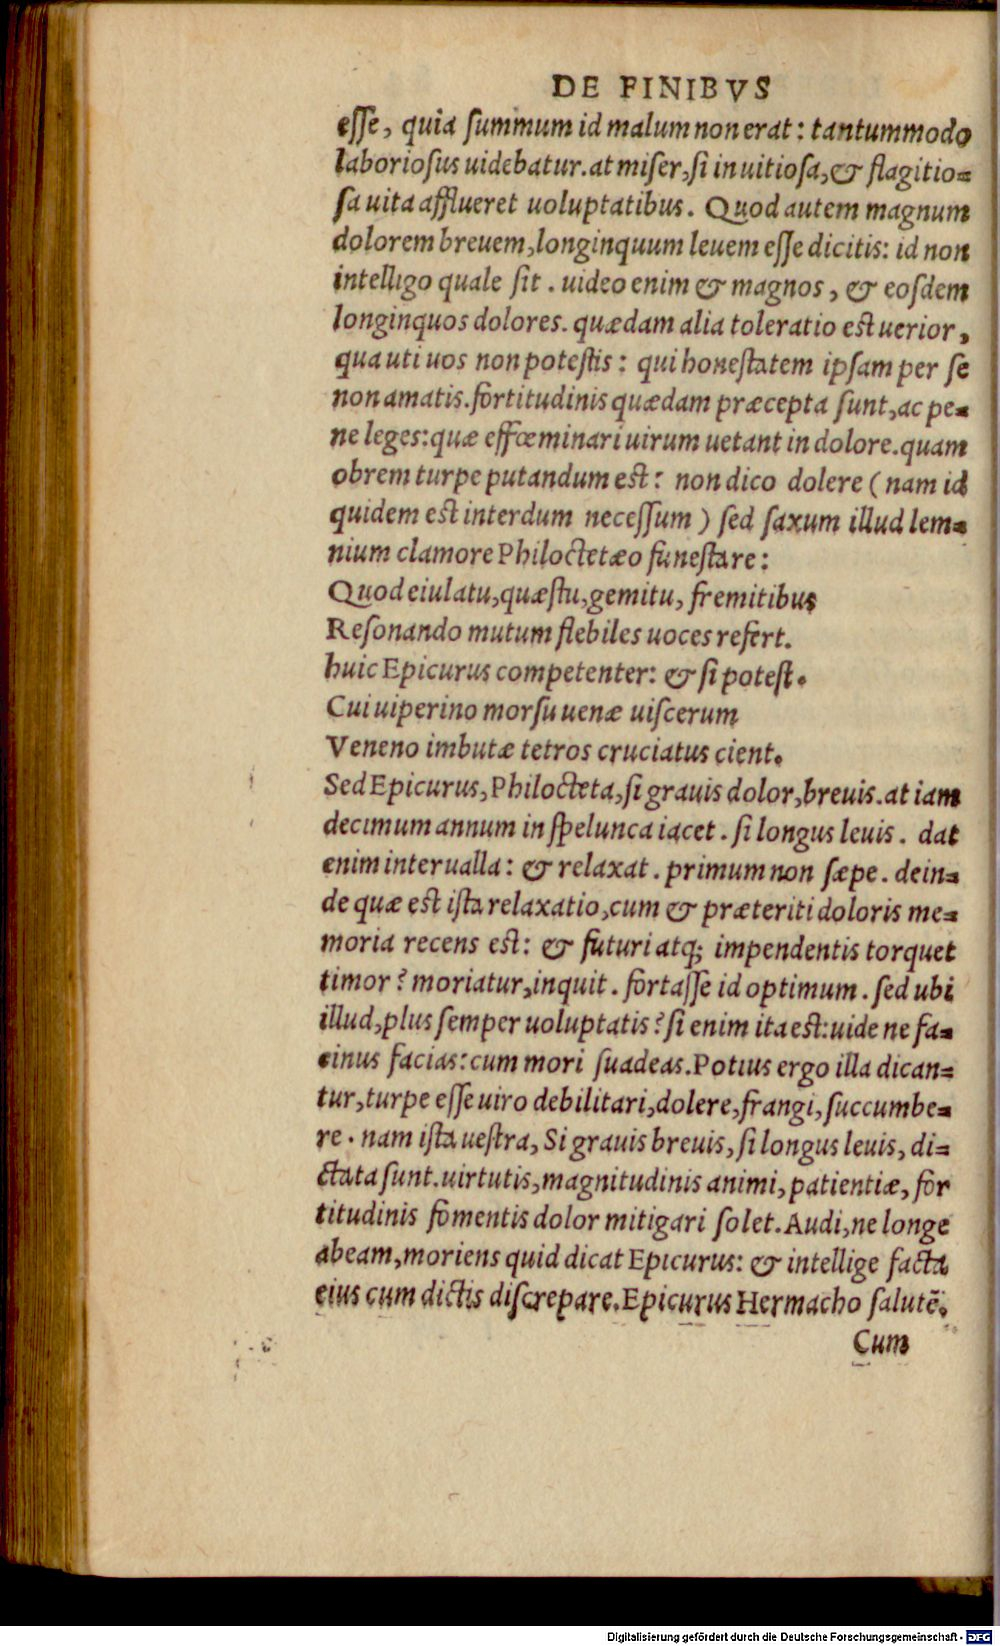 DE FINIBVS
esse, quia summum id malum non erat: tantummodo
laboriosus uidebatur. at miser, si in uitiosa, & flagitio=
sa uita afflueret uoluptatibus. Quod autem magnum
dolorem breuem, longinquum leuem esse dicitis: id non
intelligo quale sit. uideo enim & magnos, & eosdem
longinquos dolores. quædam alia toleratio est uerior,
qua uti uos non potestis: qui honestatem ipsam per se
non amatis. fortitudinis quædam præcepta sunt, ac pe=
ne leges: quæ effœminari uirum uetant in dolore. quam
obrem turpe putandum est: non dico dolere (nam id
quidem est interdum necessum) sed saxum illud lem=
nium clamore Philoctetæo funestare:
Quod eiulatu, quæstu, gemitu, fremitibus
Resonando mutum flebiles uoces refert.
huic Epicurus competenter: & si potest.
Cui uiperino morsu uenæ uiscerum
Veneno imbutæ tetros cruciatus cient.
Sed Epicurus, Philocteta, si grauis dolor, breuis. at iam
decimum annum in spelunca iacet. si longus leuis. dat
enim interualla: & relaxat. primum non sæpe. dein=
de quæ est ista relaxatio, cum & præteriti doloris me=
moria recens est: & futuri atq; impendentis torquet
timor? moriatur, inquit. fortasse id optimum. sed ubi
illud, plus semper uoluptatis? si enim ita est: uide ne fa=
cinus facias: cum mori suadeas. Potius ergo illa dican=
tur, turpe esse uiro debilitari, dolere, frangi, succumbe=
re. nam ista uestra, Si grauis breuis, si longus leuis, di=
ctata sunt. uirtutis, magnitudinis animi, patientiæ, for
titudinis fomentis dolor mitigari solet. Audi, ne longe
abeam, moriens quid dicat Epicurus: & intellige facta
eius cum dictis discrepare. Epicurus Hermacho salutē.
Cum
Digitalisierung gefördert durch die Deutsche Forschungsgemeinschaft - DFG